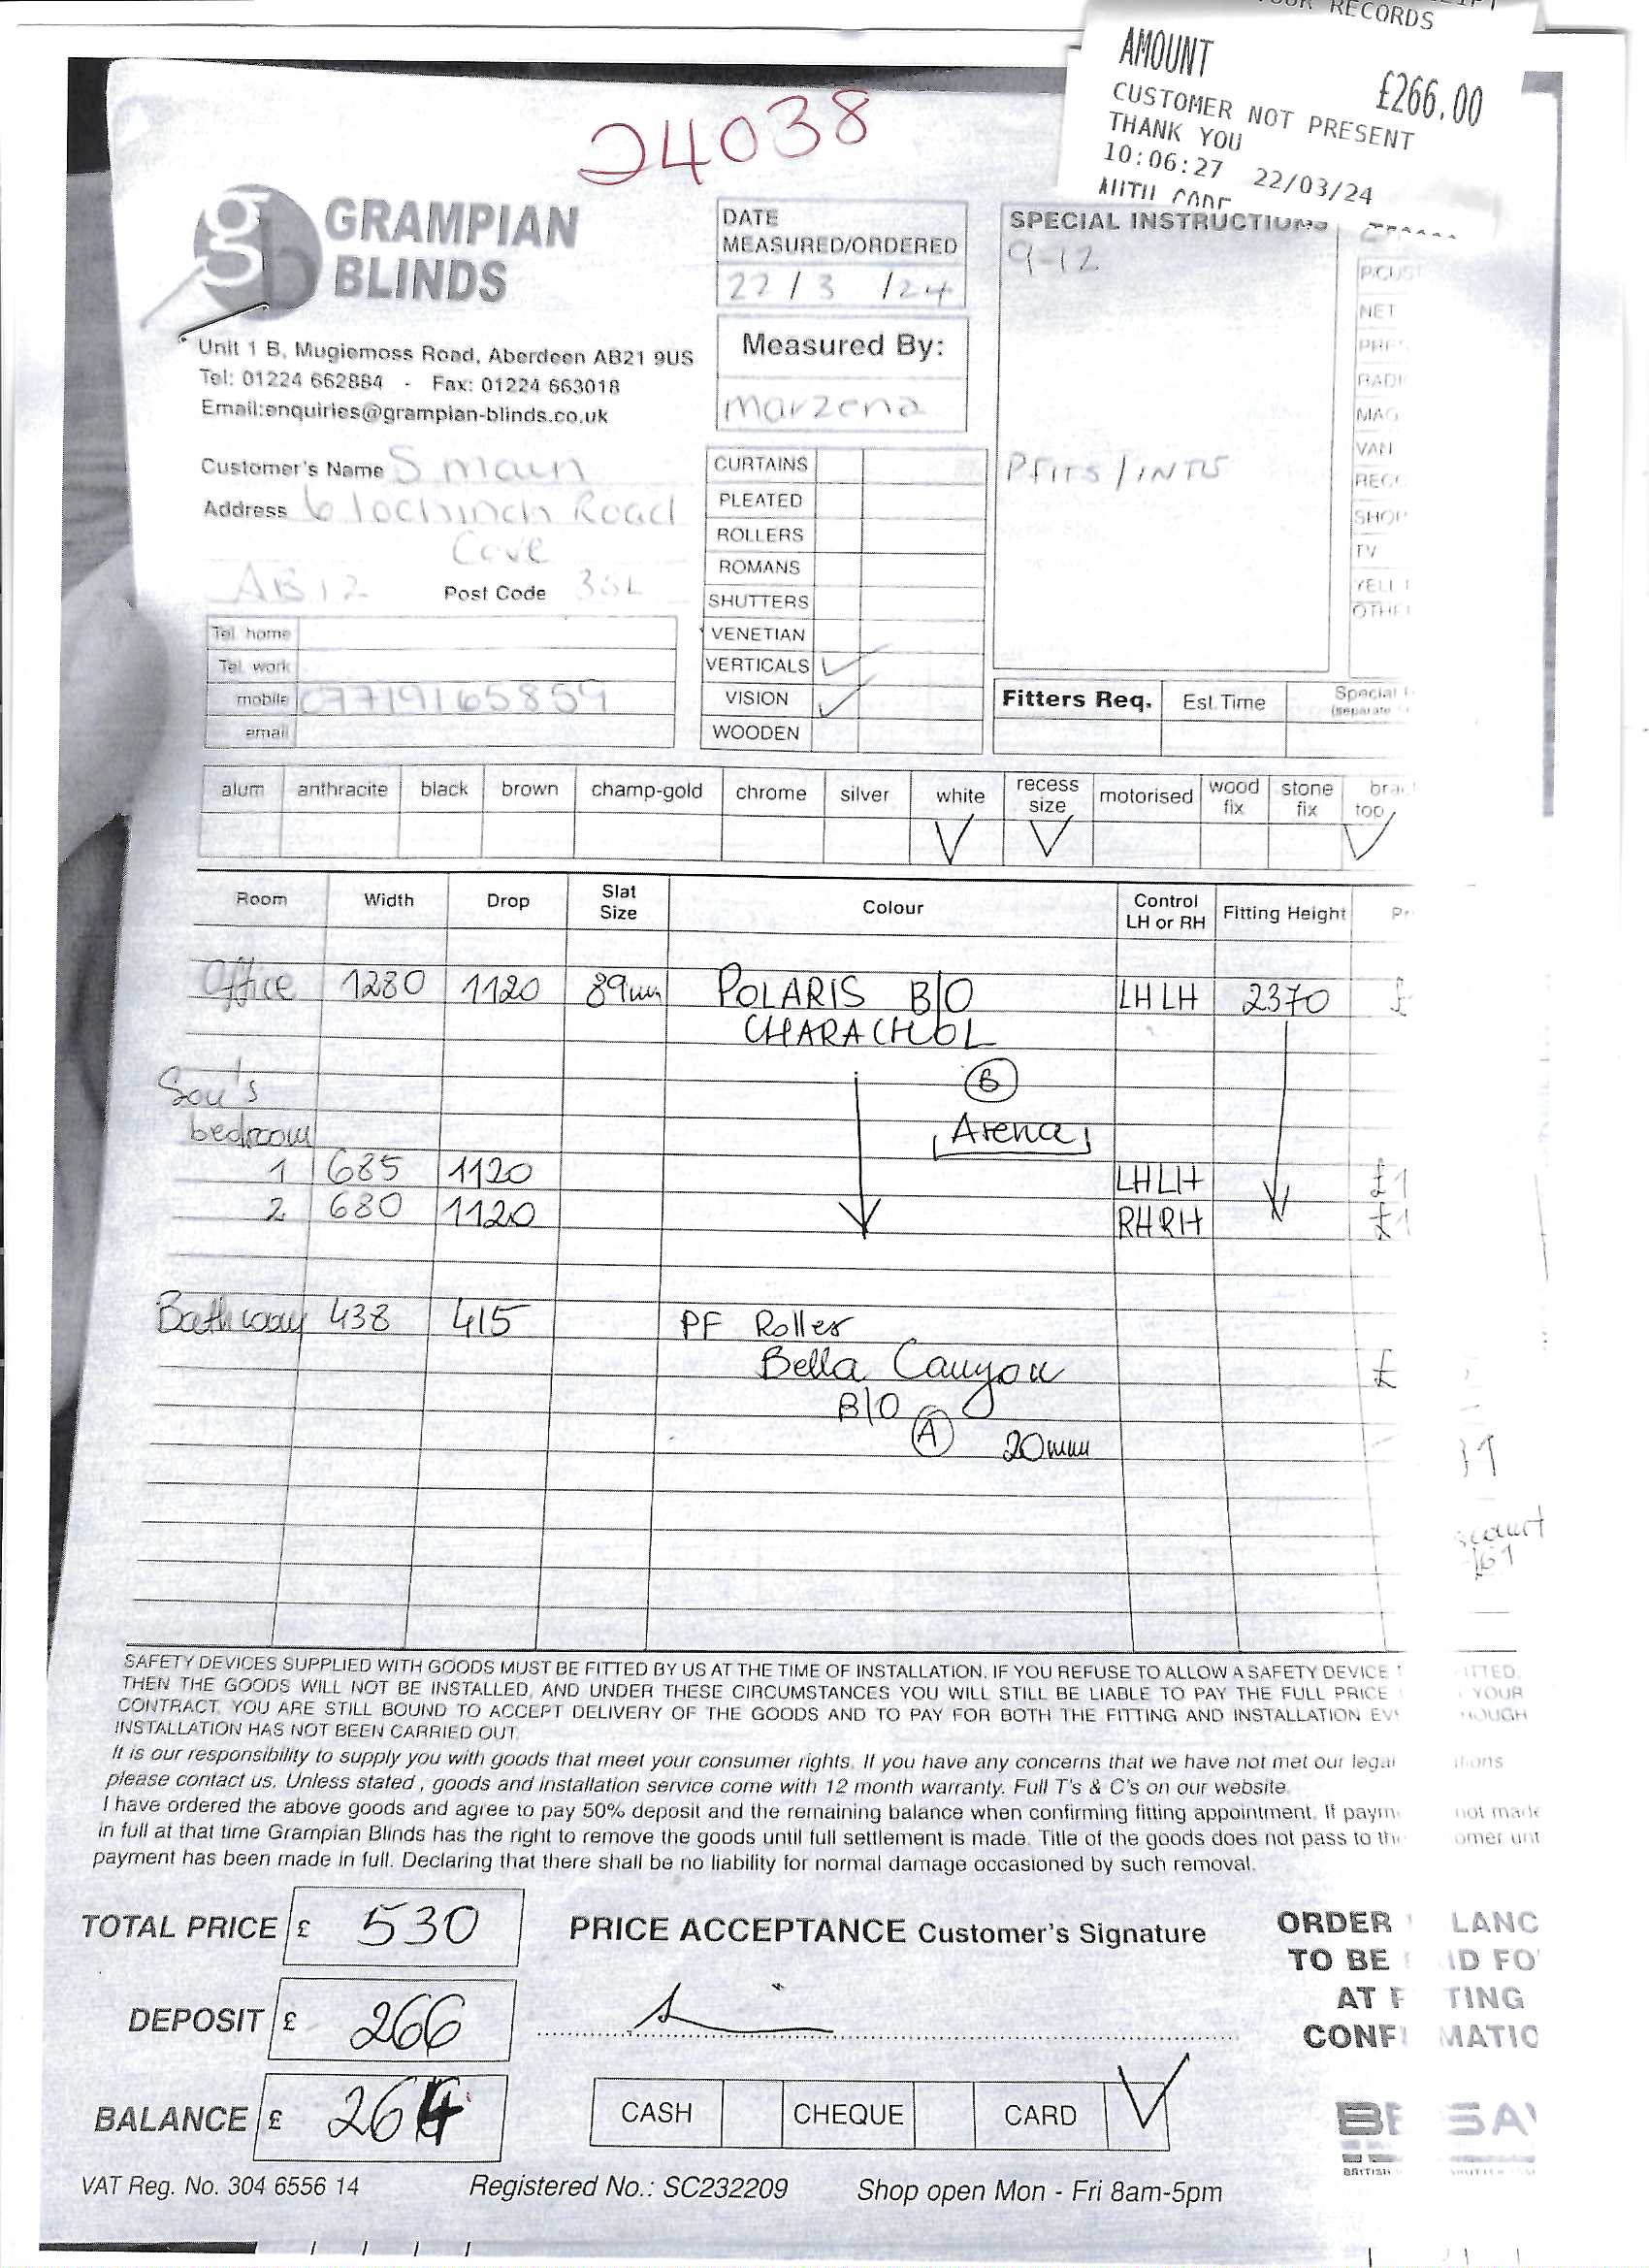 RECORDS
AMOUNT
£266.00
CUSTOMER NOT PRESENT
THANK YOU
10:06:27 22/03/24
AUTH CODE
24038
gb GRAMPIAN
BLINDS
Unit 1 B, Mugiemoss Road, Aberdeen AB21 9US
Tel: 01224 662884 - Fax: 01224 663018
Email:enquiries@grampian-blinds.co.uk
DATE
MEASURED/ORDERED
22 / 3 / 24
Measured By:
Marzena
SPECIAL INSTRUCTIONS
9-12
PFITS / INTU
PCUST
NET
RADI
MAG
VAN
RECC
SHOP
TV
YELL
OTHE
Customer's Name S Main
Address 6 lochinch Road
Cove
AB12 Post Code 3SL
Tel. home
Tel. work
mobile 07719165859
email
CURTAINS
PLEATED
ROLLERS
ROMANS
SHUTTERS
VENETIAN
VERTICALS ✓
VISION ✓
WOODEN
Fitters Req. Est. Time Special
(separate
alum anthracite black brown champ-gold chrome silver white recess size motorised wood fix stone fix top
✓ ✓ ✓
Room Width Drop Slat Size Colour Control LH or RH Fitting Height
Office 1280 1120 89mm POLARIS B/O LHLH 2370 £
CHARACHOL
B
Arena
Son's
bedroom
1 685 1120 LHLH £1
2 680 1120 RHRH £1
Bathroom 438 415 PF Roller
Bella Canyon £
B/O
A 20mm
SAFETY DEVICES SUPPLIED WITH GOODS MUST BE FITTED BY US AT THE TIME OF INSTALLATION. IF YOU REFUSE TO ALLOW A SAFETY DEVICE
THEN THE GOODS WILL NOT BE INSTALLED, AND UNDER THESE CIRCUMSTANCES YOU WILL STILL BE LIABLE TO PAY THE FULL PRICE YOUR
CONTRACT. YOU ARE STILL BOUND TO ACCEPT DELIVERY OF THE GOODS AND TO PAY FOR BOTH THE FITTING AND INSTALLATION EV HOUGH
INSTALLATION HAS NOT BEEN CARRIED OUT.
It is our responsibility to supply you with goods that meet your consumer rights. If you have any concerns that we have not met our legal tions
please contact us. Unless stated , goods and installation service come with 12 month warranty. Full T's & C's on our website.
I have ordered the above goods and agree to pay 50% deposit and the remaining balance when confirming fitting appointment. If paym not made
in full at that time Grampian Blinds has the right to remove the goods until full settlement is made. Title of the goods does not pass to the omer unt
payment has been made in full. Declaring that there shall be no liability for normal damage occasioned by such removal.
TOTAL PRICE £ 530
PRICE ACCEPTANCE Customer's Signature
DEPOSIT £ 266
BALANCE £ 264
CASH CHEQUE CARD ✓
ORDER LANC
TO BE ID FO
AT F TING
CONFI MATIO
VAT Reg. No. 304 6556 14 Registered No.: SC232209 Shop open Mon - Fri 8am-5pm